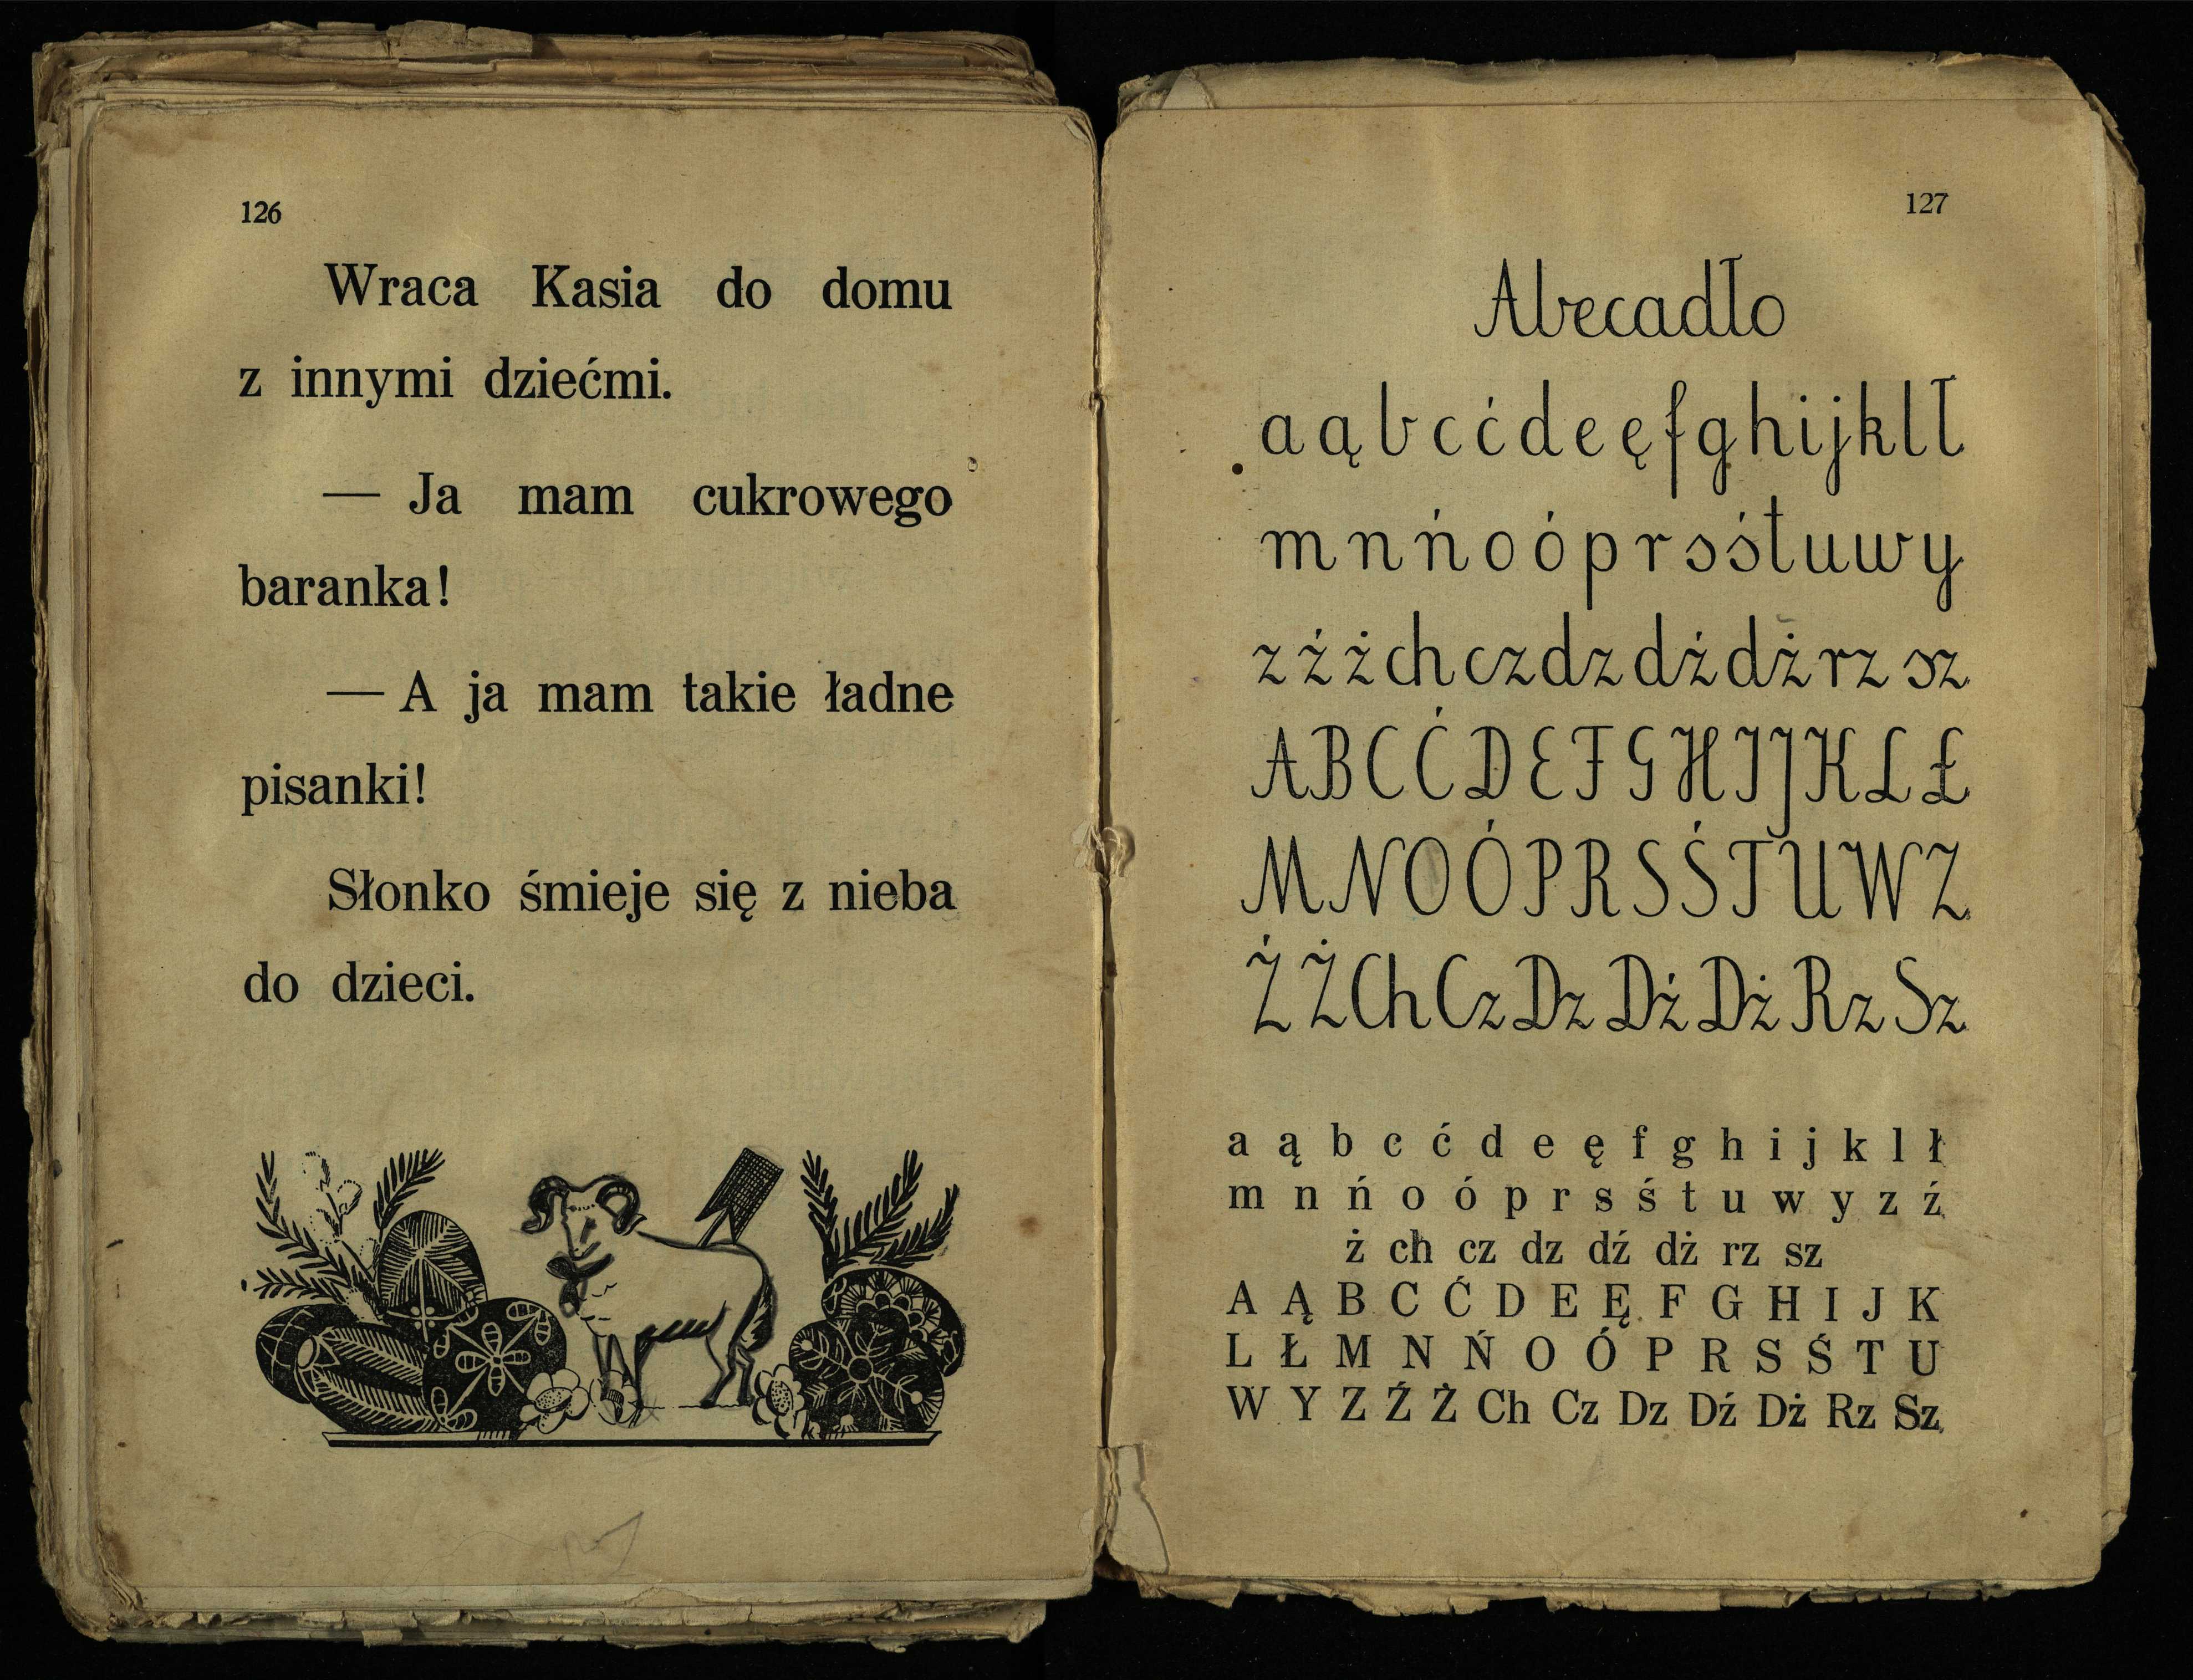 126
Wraca Kasia do domu
z innymi dziećmi.
— Ja mam cukrowego
baranka!
— A ja mam takie ładne
pisanki!
Słonko śmieje się z nieba
do dzieci.
127
Abecadło
a ą b c ć d e ę f g h i j k l ł
m n ń o ó p r s ś t u w y
z ź ż ch cz dz dź dż rz sz
A B C Ć D E F G H I J K L Ł
M N O Ó P R S Ś T U W Z
Ź Ż Ch Cz Dz Dź Dż Rz Sz
a ą b c ć d e ę f g h i j k l ł
m n ń o ó p r s ś t u w y z ź
ż ch cz dz dź dż rz sz
A Ą B C Ć D E Ę F G H I J K
L Ł M N Ń O Ó P R S Ś T U
W Y Z Ź Ż Ch Cz Dz Dź Dż Rz Sz